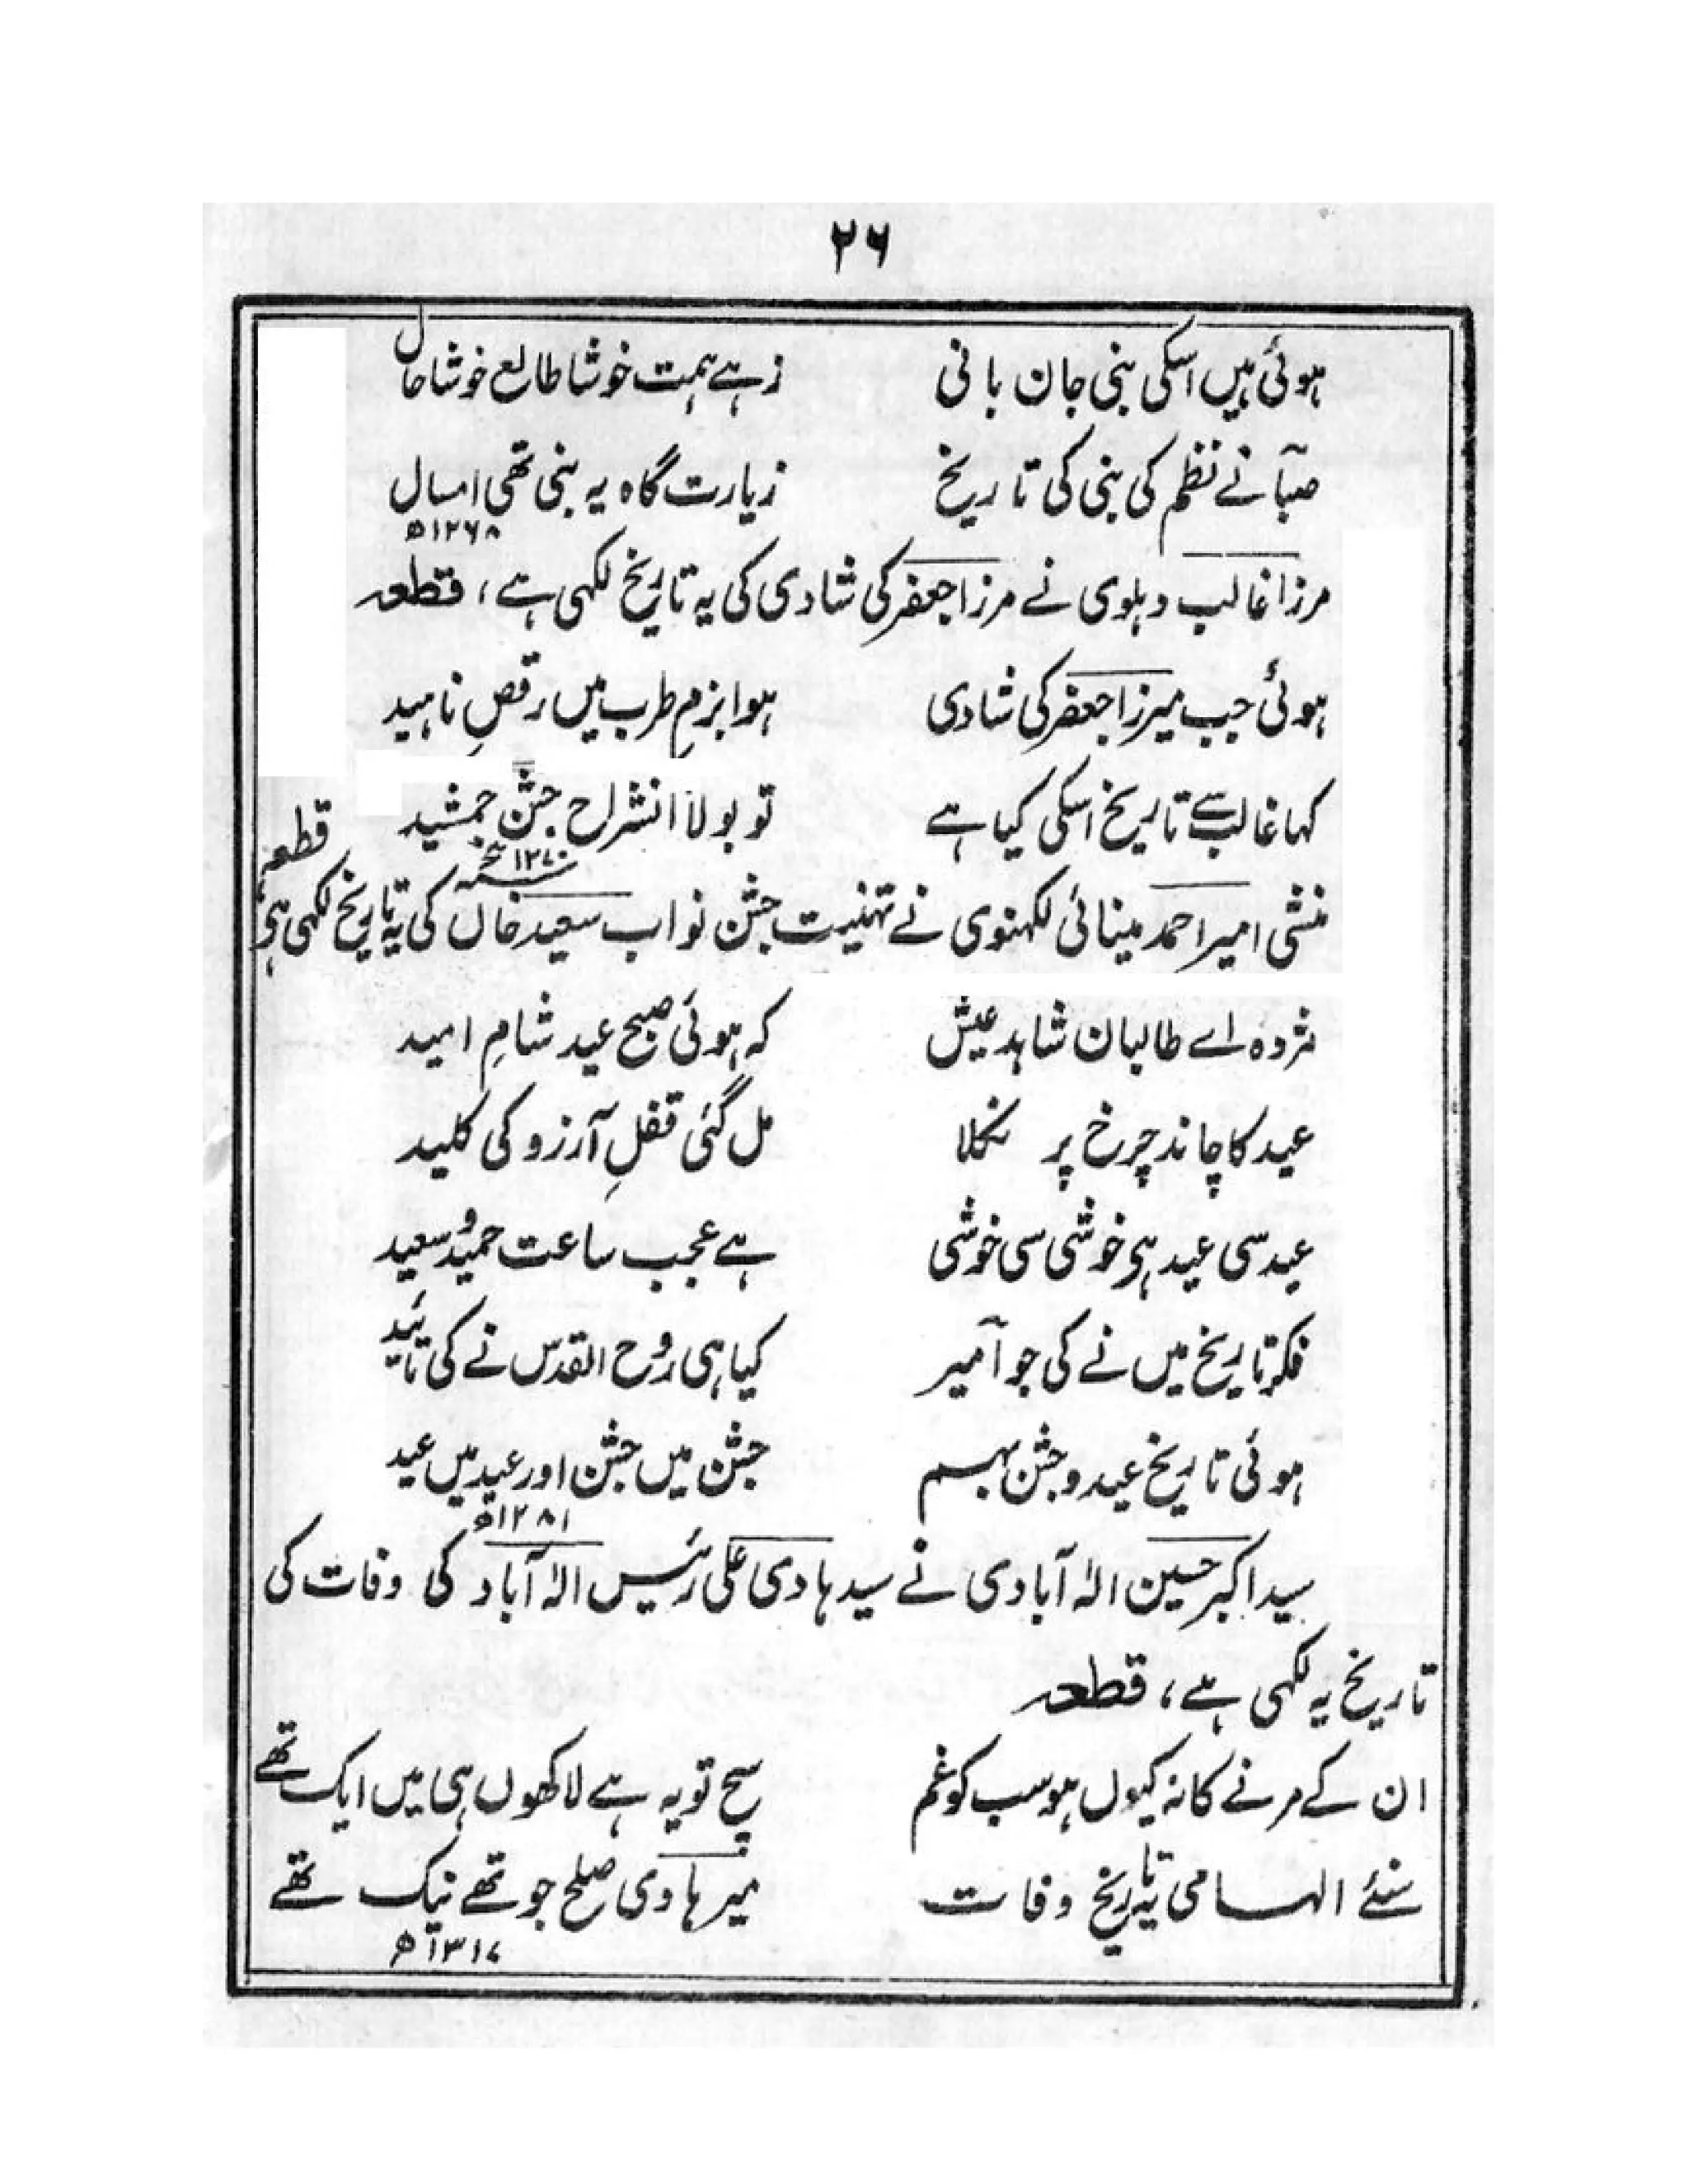 ۲۶
ہوئی ہیں اسکی بنی جان بانی زہے ہمت خوشا طالع خوشا حال
صبا نے نظم کی بنی کی تاریخ زیارت گاہ یہ بنی تھی امسال
۱۲۶۸ھ
مرزا غالب دہلوی نے مرزا جعفر کی شادی کی یہ تاریخ لکھی ہے، قطعہ
ہوئی جب میرزا جعفر کی شادی ہوا بزمِ طرب میں رقصِ ناہید
کہا غالب سے تاریخ اسکی کیا ہے تو بولا انشراح جشن جمشید
۱۲۷۰
قطعہ
منشی امیر احمد مینائی لکھنوی نے تہنیت جشن نواب سعید خاں کی یہ تاریخ لکھی ہی
مژدہ اے طالبان شاہد عیش کہ ہوئی صبح عید شامِ امید
عید کا چاند چرخ پر نکلا مل گئی قفلِ آرزو کی کلید
عید سی عید ہی خوشی سی خوشی ہے عجب ساعت حمید و سعید
فکر تاریخ میں نے کی جو امیر کیا ہی روح القدس نے کی تائید
ہوئی تاریخ عید و جشن بہم جشن میں جشن اور عید میں عید
۱۲۸۱ھ
سید اکبر حسین الہٰ آبادی نے سید ہادی علی رئیس الہٰ آباد کی وفات کی
تاریخ یہ لکھی ہے، قطعہ
ان کے مرنے کا نہ کیوں ہو سب کو غم سچ تو یہ ہے لاکھوں ہی میں ایک تھے
سنئے الہامی یہ تاریخ وفات میر ہادی صلح جو تھے نیک تھے
۱۳۱۷ھ